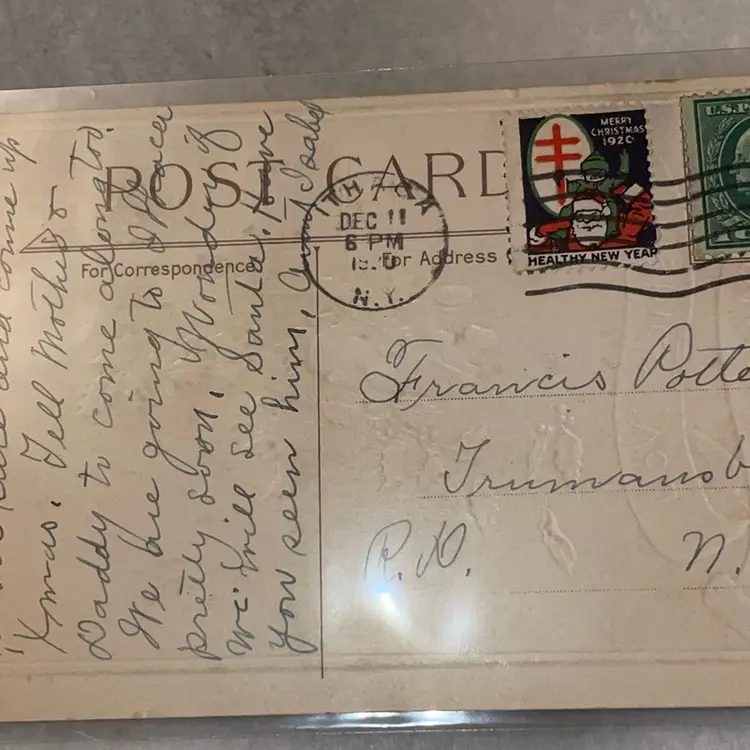 POST CARD
For Correspondence
For Address
ITHACA
DEC 11
6 PM
N.Y.
MERRY
CHRISTMAS
1920
HEALTHY NEW YEAR
U.S.
and come up
Xmas. Tell Mother &
Daddy to come along too.
We are going to Ithaca
pretty soon. Wonder if
we will see Santa. Have
you seen him,
Francis Potte
Trumansb
R.D.
N.